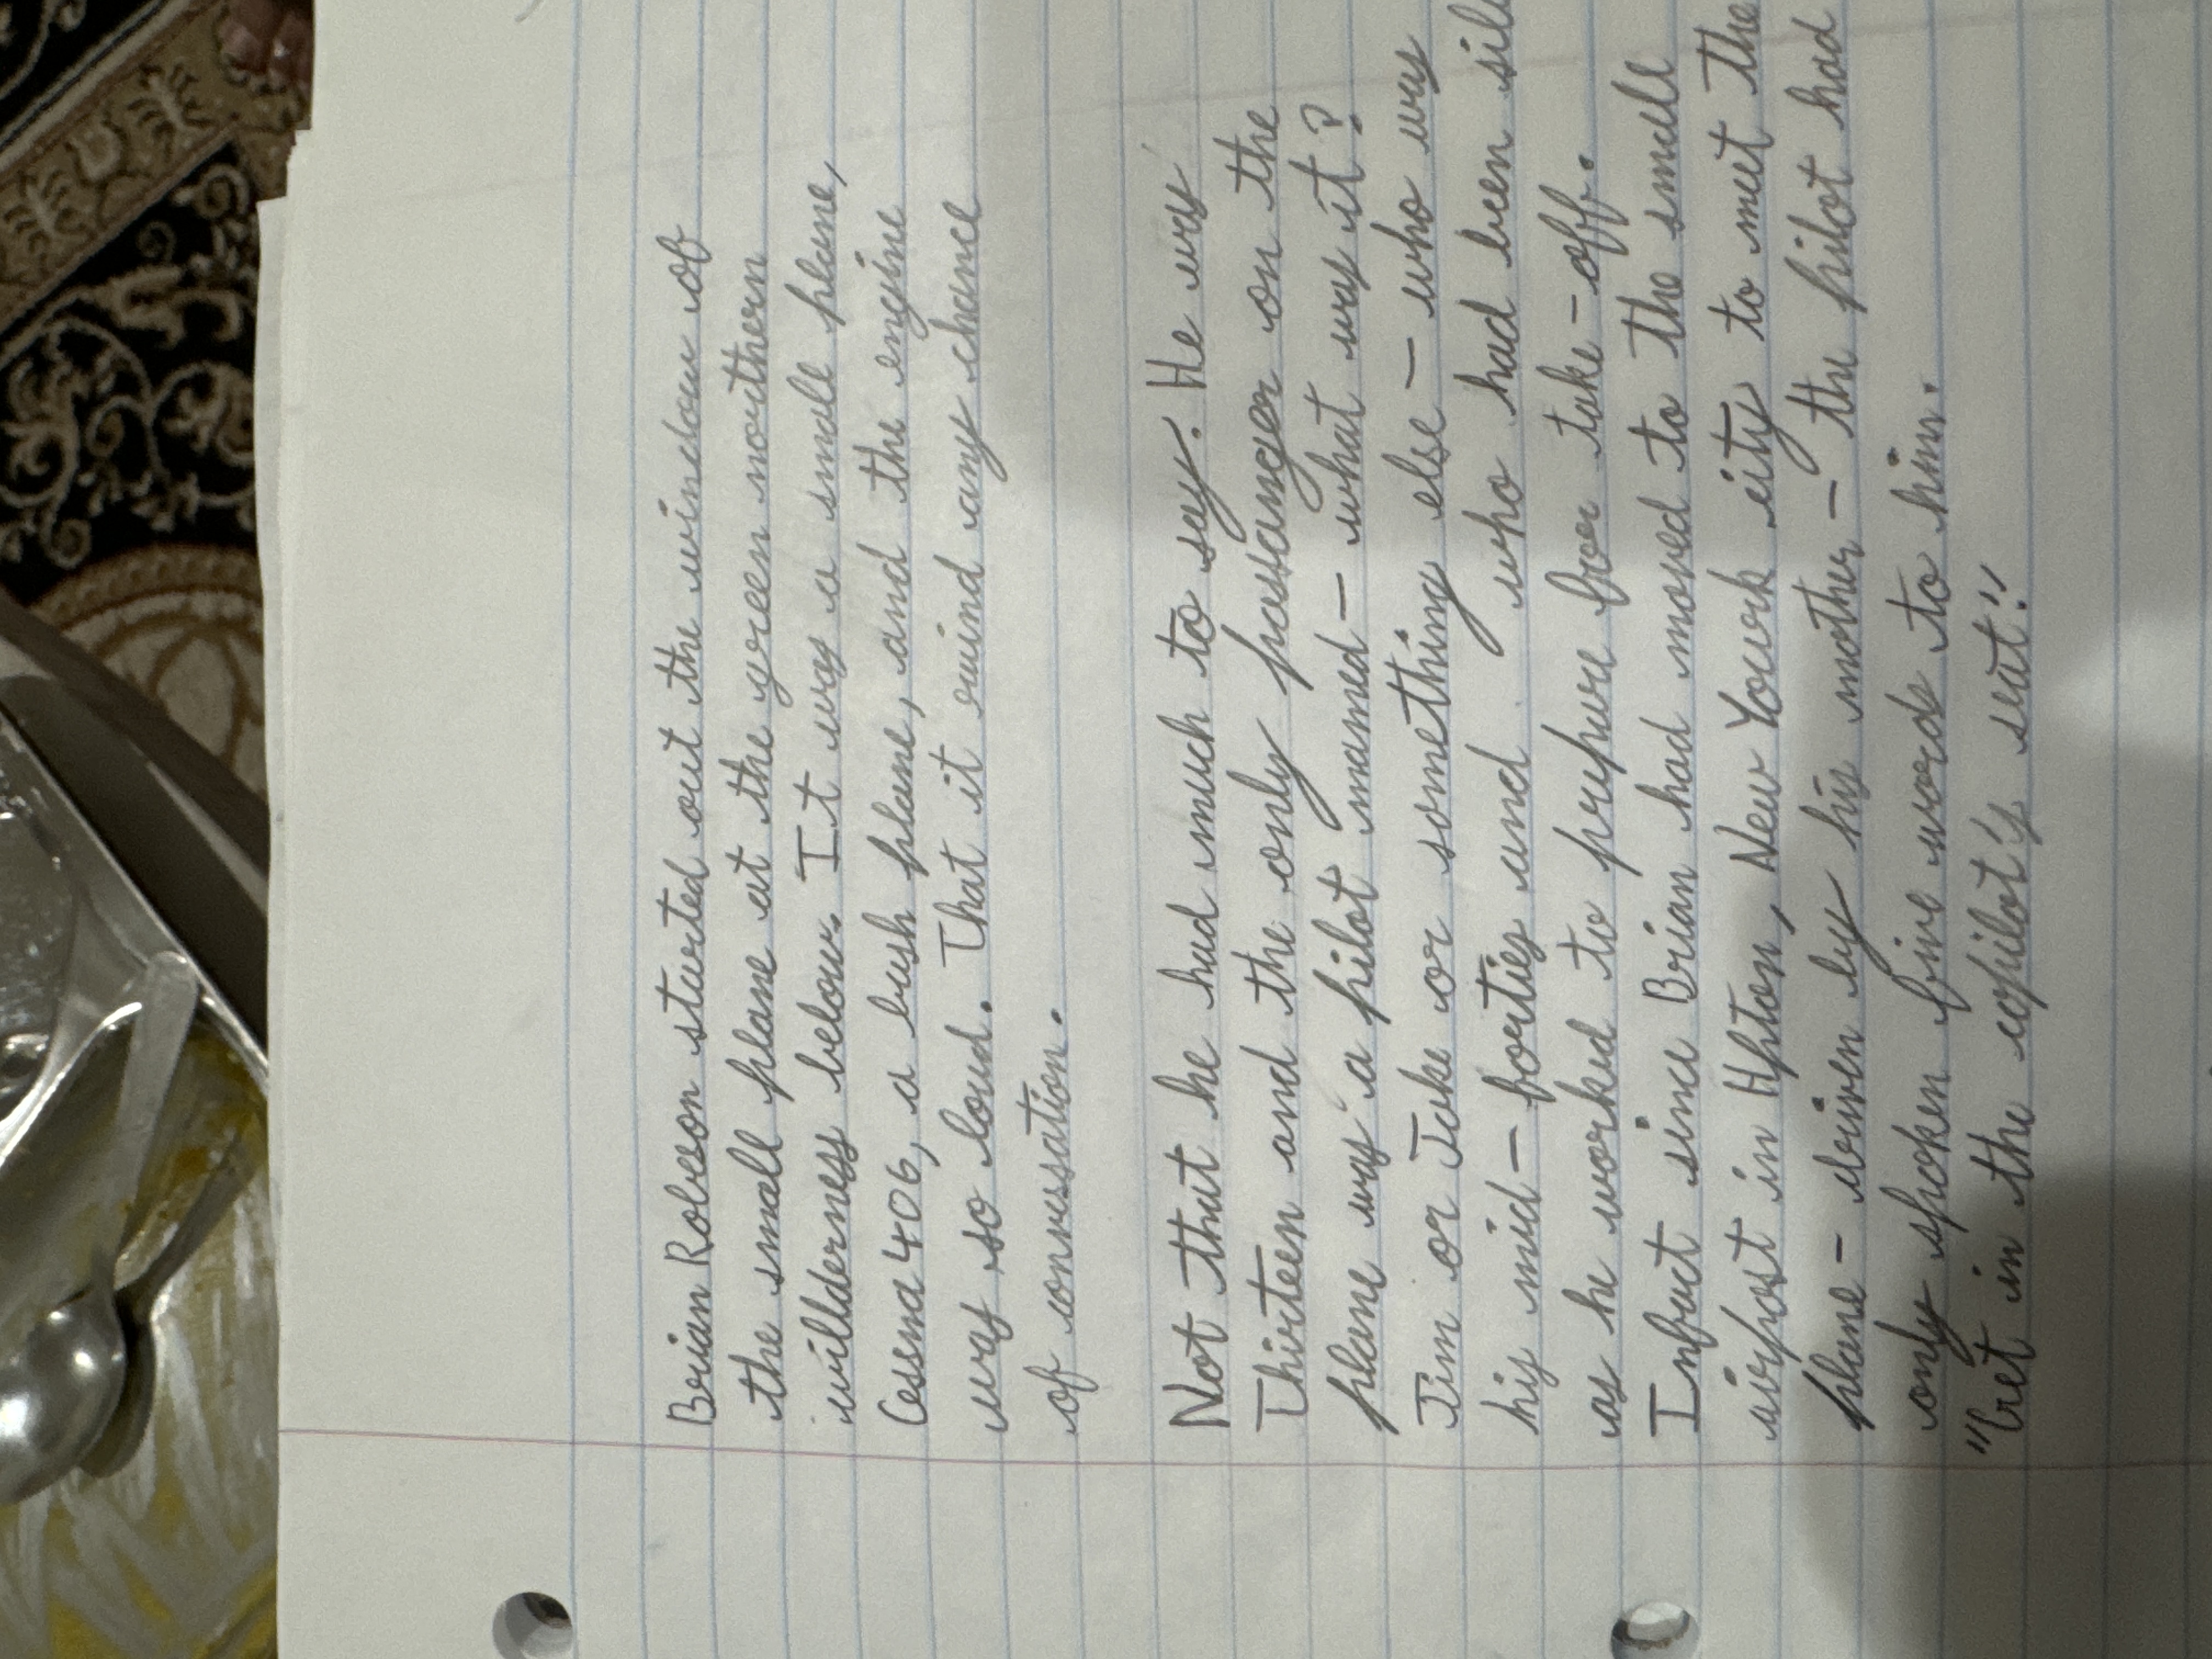 Brian Robeson started out the window of
the small plane at the green northern
wilderness below. It was a small plane,
Cessna 406, a bush plane, and the engine
was so loud. That it ruind any chance
of conversation.
Not that he had much to say. He was
Thirteen and the only passanger on the
plane was a pilot mamed - what was it?
Jim or Jake or something else - who was
his mid - forties and who had been sil
as he worked to prepare for take - off.
Infact since Brian had moved to the small
airpost in Hpton, New Yourk city to meet the
plane - driven by his mother - the pilot had
only spoken five words to him.
"Get in the copilot's seat."